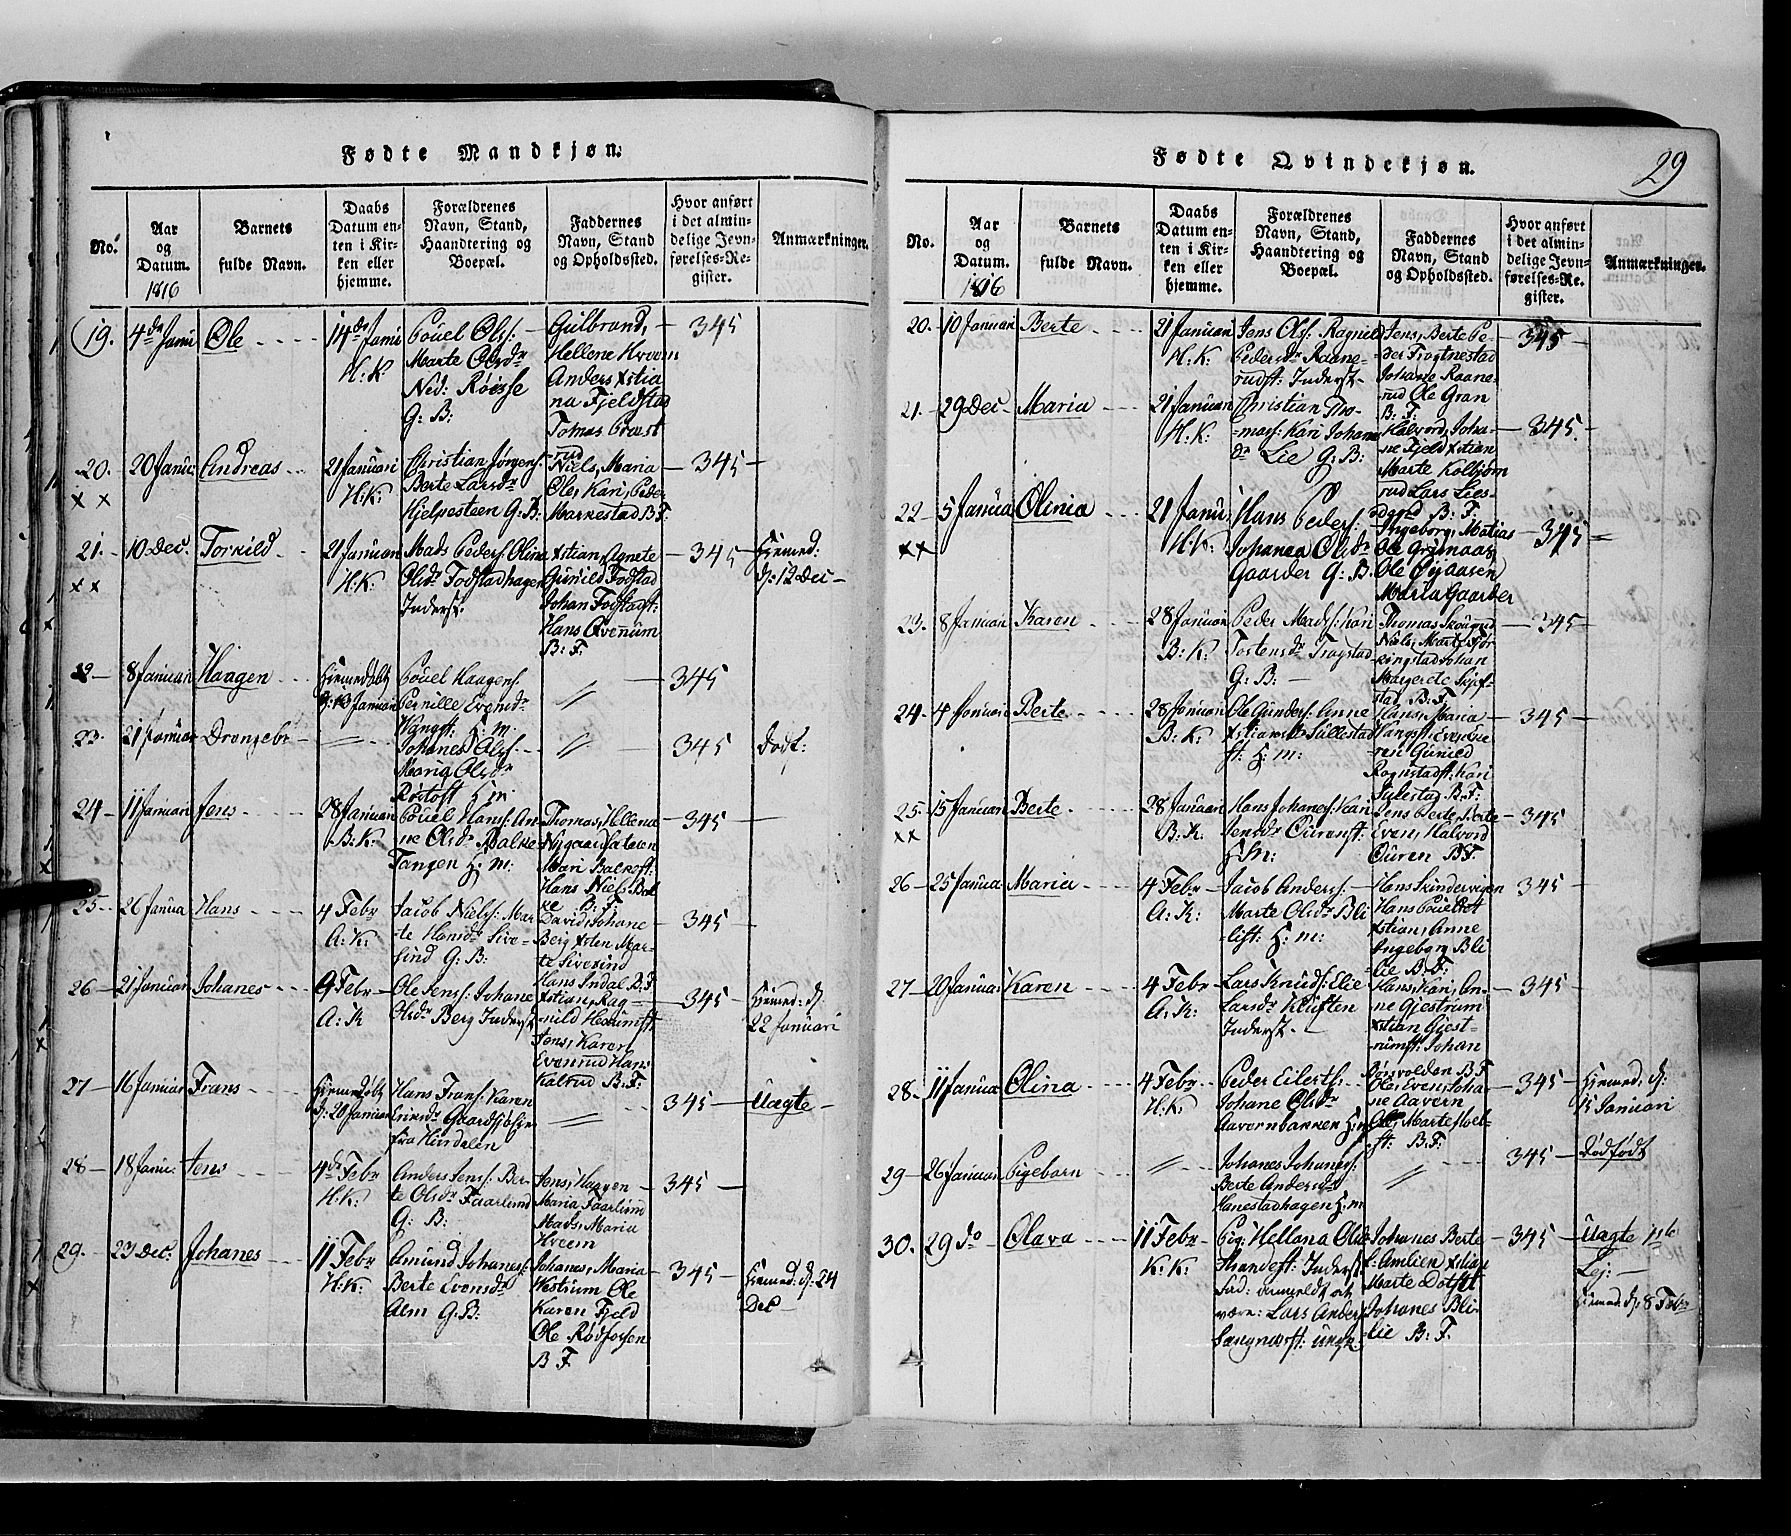 Fødte Mandkjøn.
No.
Aar
og
Datum.
1816
Barnets
fulde Navn.
Daabs
Datum en-
ten i Kir-
ken eller
hjemme.
Forældrenes
Navn, Stand,
Haandtering og
Boepæl.
Faddernes
Navn, Stand
og Opholdssted.
Hvor anført
i det almin-
delige Jevn-
førelses-Re-
gister.
Anmærkninger.
19. 4de Janu Ole 14de Janu
H: K
Povel Ols:
Marte Olsdr
Ned: Røisse
G: B:
Gulbrand,
Hellene Kroem
Anders Xstia
na Fjeldstad
Tomas
345
20. 20 Janu: Andreas 21 Januari
H: K:
Christian Jørgens:
Berte Larsdr
Hjelpesteen G: B:
Niels, Maria
Ole, Kari, Peder
Marnestad B F:
345
21. 10 Dec. Torkild 21 Januari
H: K:
Mads Peders: Olina
Olsdr Fodstadhagen
Inderst.
Xstian, Agnete
Gunild Fodstad
Johan Fodstad:
Hans Qvenum
B: F:
345
Hjemed:
d: 12 Dec
22 8 Januari Haagen Hjemedøbt
d: 13 Januari
Povel Haagens:
Pernille Evensdr
H: m:
345
23. 21 Januar Drengebr
Johanes Ols:
Maria Olsdr
H: m:
345
Dødf:
24 11 Januari Jens 28 Januari
B: K:
Povel Hans: An
ne Olsdr Balke
Tangen H: m:
Thomas, Hellena
Nygaard
Mari Balkeff:
Hans Niels Bal
ke B: F:
345
25 26 Janua Hans 4 Febr
A: K:
Jacob Niels: Mar
te Hansdr Sive-
sind G: B:
David, Johane
Berg Xsten Mar-
te Sivesind
Hans Indal B. F
345
26 21 Januari Johanes 9 Febr
A: K
Ole Jens: Johane
Olsdr Berg Inderst
Xstian, Rag-
nild
Jens, Karen
Evenrud Hans
Kalrud B: F:
345
Hjemed: d
22 Januari
27 16 Januar Frans Hjemedøbt
d: 20 Januari
Hans Frans: Karen
Eriksdr
fra Hurdalen
345
Uægte
28 18 Janu: Jens 4de Febr
H: K:
Anders Jens: Ber-
te Olsdr Faarlund
G: B:
Jens, Haagen
Maria Faarlund
Mads, Maria
Hveem
345
29. 23 Dec: Johanes 11 Febr
H: K:
Amund Johanes:
Berte Evensdr
Alm G: B:
Johanes, Maria
Westrum Ole
Karen Fjeld
Ole Rødfossen
B F.
345
Hjemed: d: 24
Dec
Fødte Qvindekjøn.
29
No.
Aar
og
Datum.
1816
Barnets
fulde Navn.
Daabs
Datum en-
ten i Kir-
ken eller
hjemme.
Forældrenes
Navn, Stand,
Haandtering og
Boepæl.
Faddernes
Navn, Stand
og Opholdssted.
Hvor anført
i det almin-
delige Jevn-
førelses-Re-
gister.
Anmærkninger.
20. 10 Januari Berte 21 Januari
H: K:
Jens Ols: Ragnild
Pedersdr Raane-
rudst: Inderst
Jens, Berte Pe-
der Frogtnestad
Johane Raane-
rud Ole Gran
B: F:
345
21. 29 Dec Maria 21 Januari
H: K:
Christian Tho-
mas: Kari Johans
dr Lie G: B:
Halvord, Joha-
ne Fjeld Xstian
Marte Kolbjørn
rud Lars Lies-
B: F:
345.
22 5 Janua Olinia 21 Janu:
H: K:
Hans Peders:
Johanna Olsdr
Gaarder G: B.
Ingeborg, Matias
Ole Grimaas
Ole
Maria Gaarder
345
23. 8 Januari Karen 28 Januari
B: K:
Peder Mads: Kari
Tostensdr Frogstad
G: B:
Thomas
Niels, Marte Før-
kingstad Johan
Margrete
B. F.
345
24. 4 Januari Berte 28 Januari
B: K:
Ole Gunders: Anne
Xstiansdr Sillestad
ft: H: m:
Hans, Maria
Gunild
Rognstad Kari
Sulestad B: F:
345
25. 15 Januari Berte 28 Januari
B: K:
Hans Johanes: Kari
Jensdr
H: m:
Jens Berte, Berte
Even, Halvord
Ouren B F:
345
26 25 Janua Maria 4 Febr
A: K:
Jacob Anders:
Marte Olsdr Bli
lift: H: m:
Hans
Hans
Xstian, Anne
Ingeborg Bli
lie B: F:
345
27 20 Januari Karen 4 Febr
A: K:
Lars Knuds: Elie
Larsdr Kluften
Inderst.
Hans, Kari, An-
ne Gjestrum
Xstian Gjest-
rumft: Johan
B F
345
28. 11 Janua Olina 4 Febr
H: K:
Peder Eilerts:
Johane Olsdr
Aavernbakken H: m
Ole, Even, Joha-
ne Aavern
Ole, Marte
ft: B: F:
345
Hjemed: d:
15 Januari
29 26 Januari Pigebarn
Johanes Johanes:
Berte Andersdr
Hanestadhagen H: m
345
Dødfødt
30. 29 do Olava 11 Febr
K: K:
Pig: Hellena Olsdr
Inderst
være: Lars Anders
ungk:
Johanes Berte
Xstian
Marte
Johanes Bli-
lie B: F.
345
Uægte 1ste
Lej:
Hjemed: d: 8 Febr